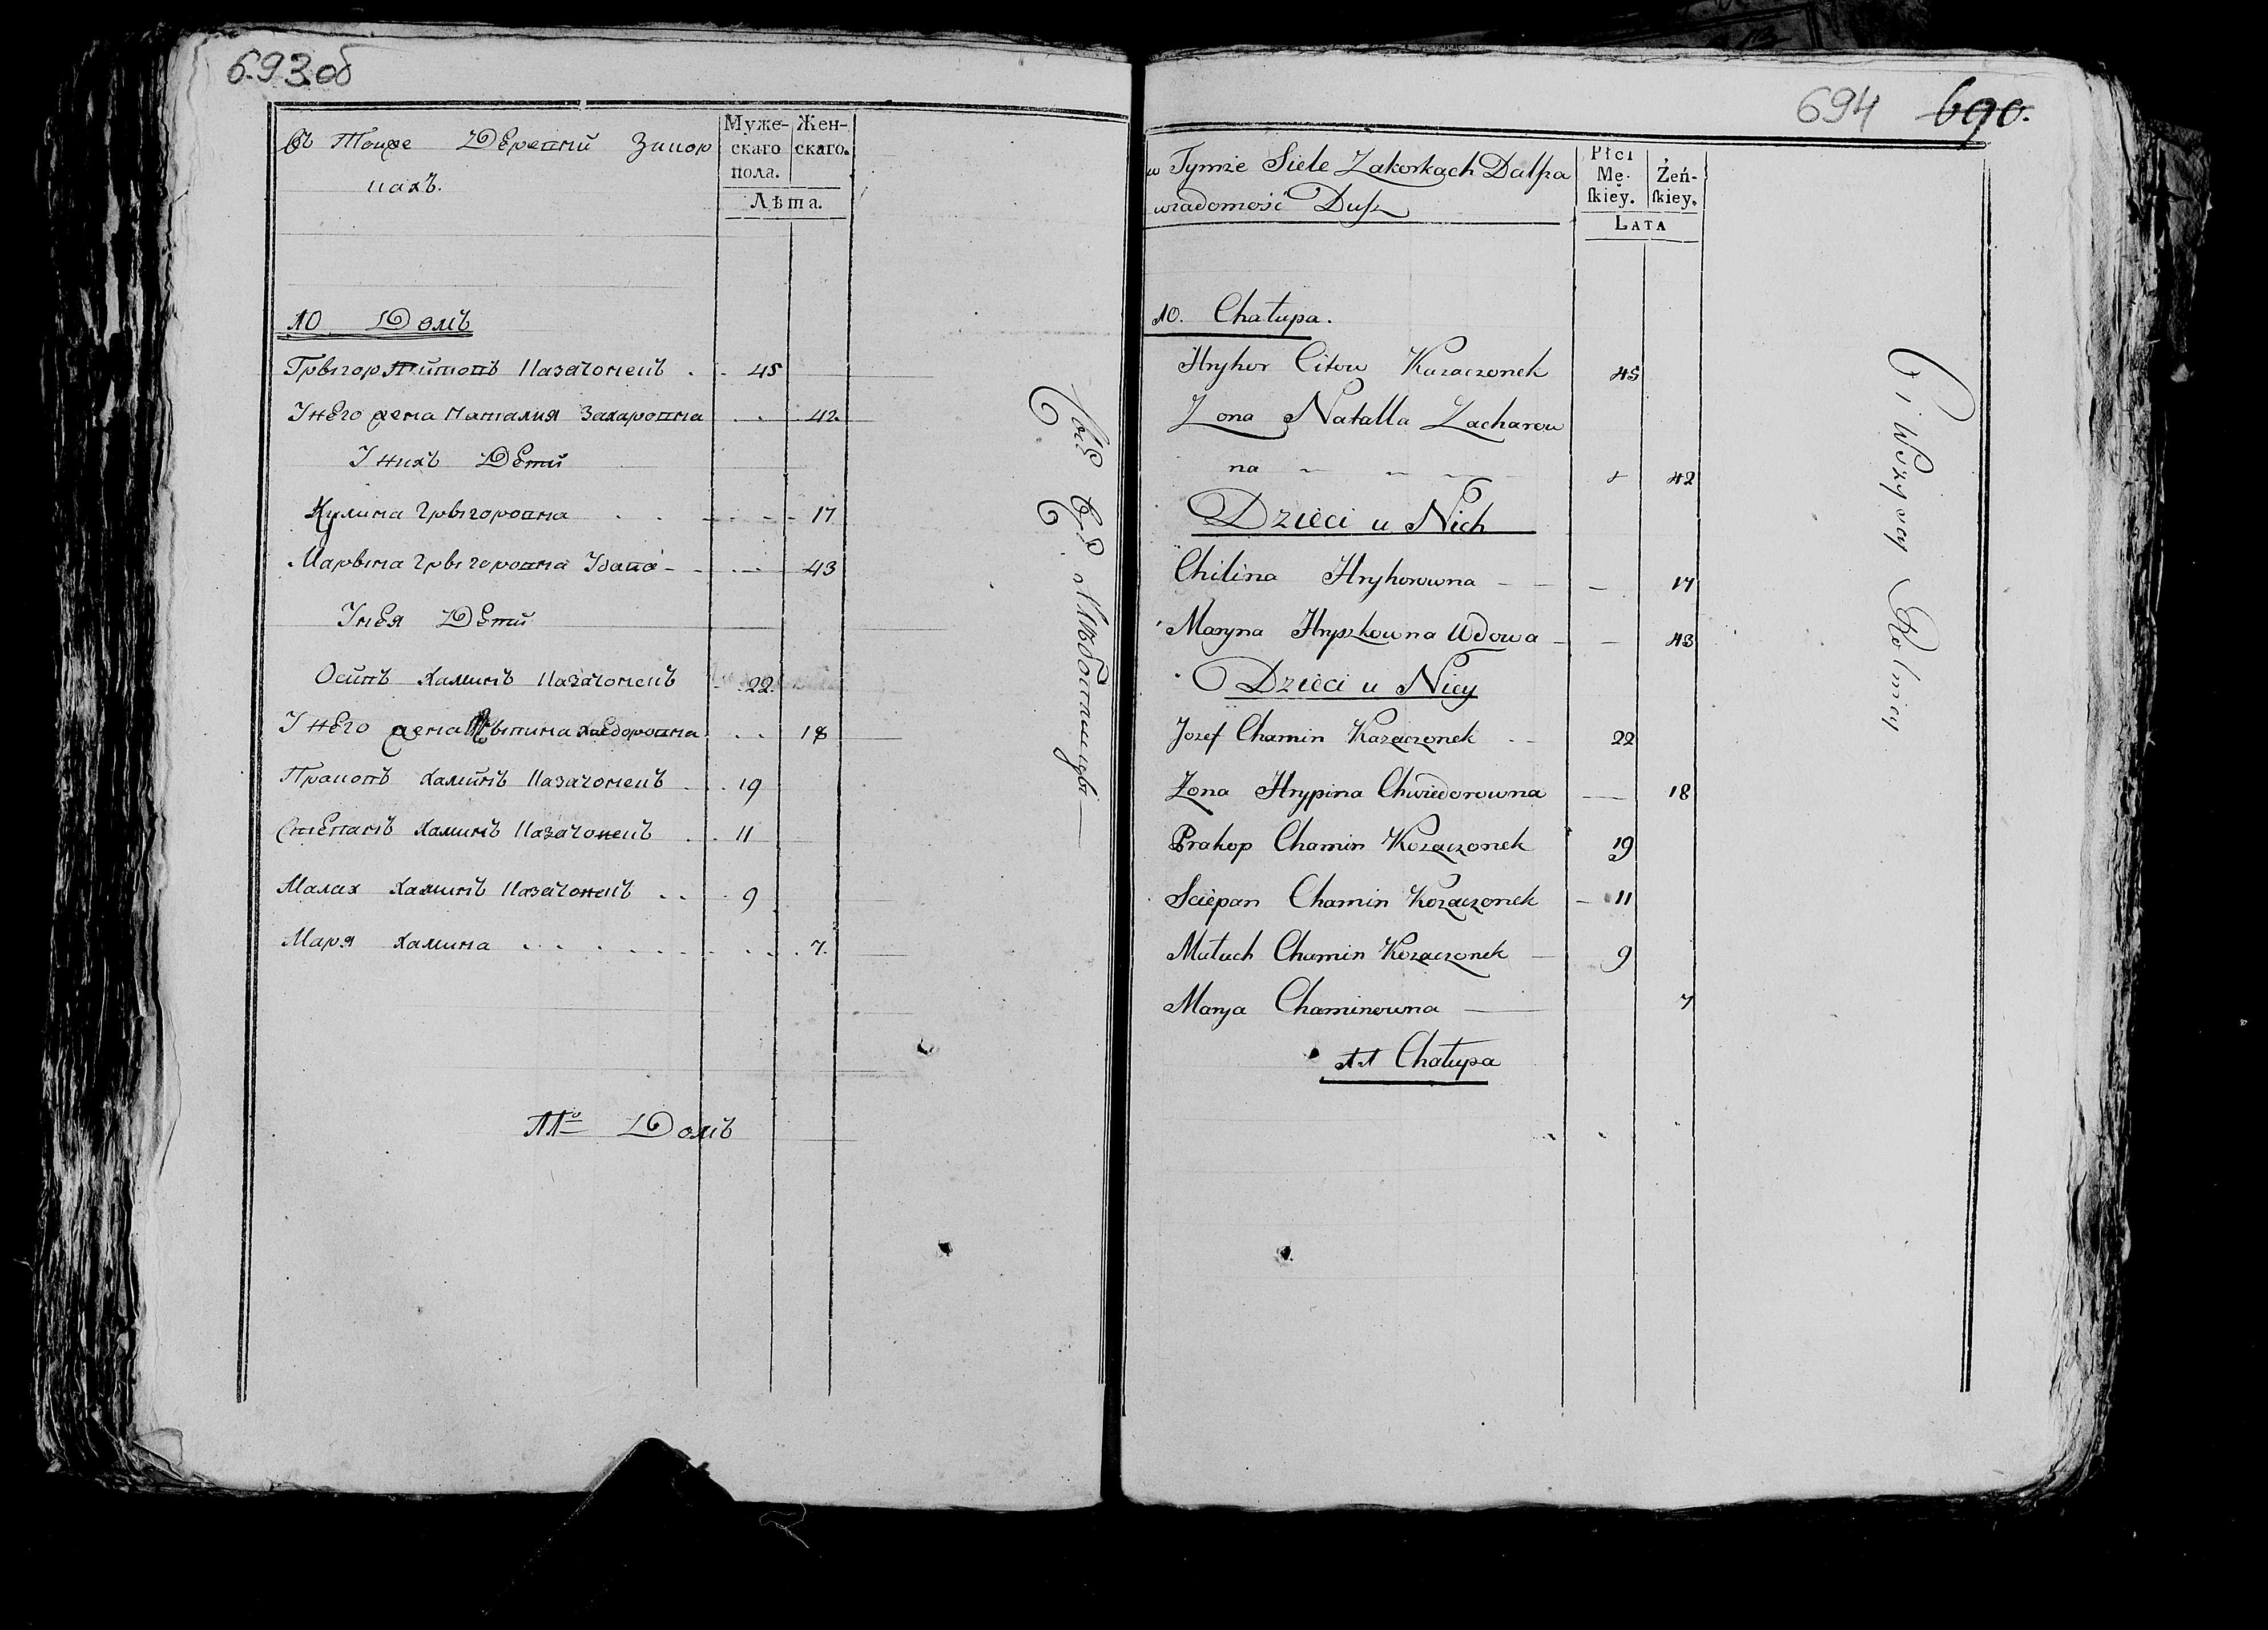 693 об
Въ Тойже Деревни Закор
кахъ.
Муже-
скаго
пола.
Жен-
скаго.
Лѣта.
10 Домъ
Грыгор Титовъ Казачонекъ . . 45
У него жена Наталия Захаровна . 42.
У нихъ Дети
Кулина Грыгоровна . . 17
Марына Грыгоровна Удава - - 43
У нея Дети
Осипъ Хаминъ Казачонекъ 22.
У него жена Хведоровна . . 18
Прокопъ Хаминъ Казачонекъ . . 19
Степанъ Хаминъ Казачонекъ . . 11
Малах Хаминъ Казачонекъ . . 9
Маря Хамина . . . . . . . . 7.
11º Домъ
694 690.
w Tymże Siele Zakorkach Dalsza
wiadomość Dusz
Płci
Mę-
skiey.
Żeń-
skiey.
LATA
10. Chałupa.
Hryhor Citow Kazaczonek 45
Żona Natalla Zacharow
na 42
Dzieci u Nich
Chilina Hryhorowna — 17
Maryna Hryszkowna Wdowa — 43
Dzieci u Niey
Jozef Chamin Kazaczonek 22
Żona Hrypina Chwiedorowna — 18
Prakop Chamin Kozaczonek 19
Sciepan Chamin Kozaczonek — 11
Małach Chamin Kozaczonek — 9
Marya Chaminowna — 7
11 Chałupa
Ci Wszyscy Rolnicy